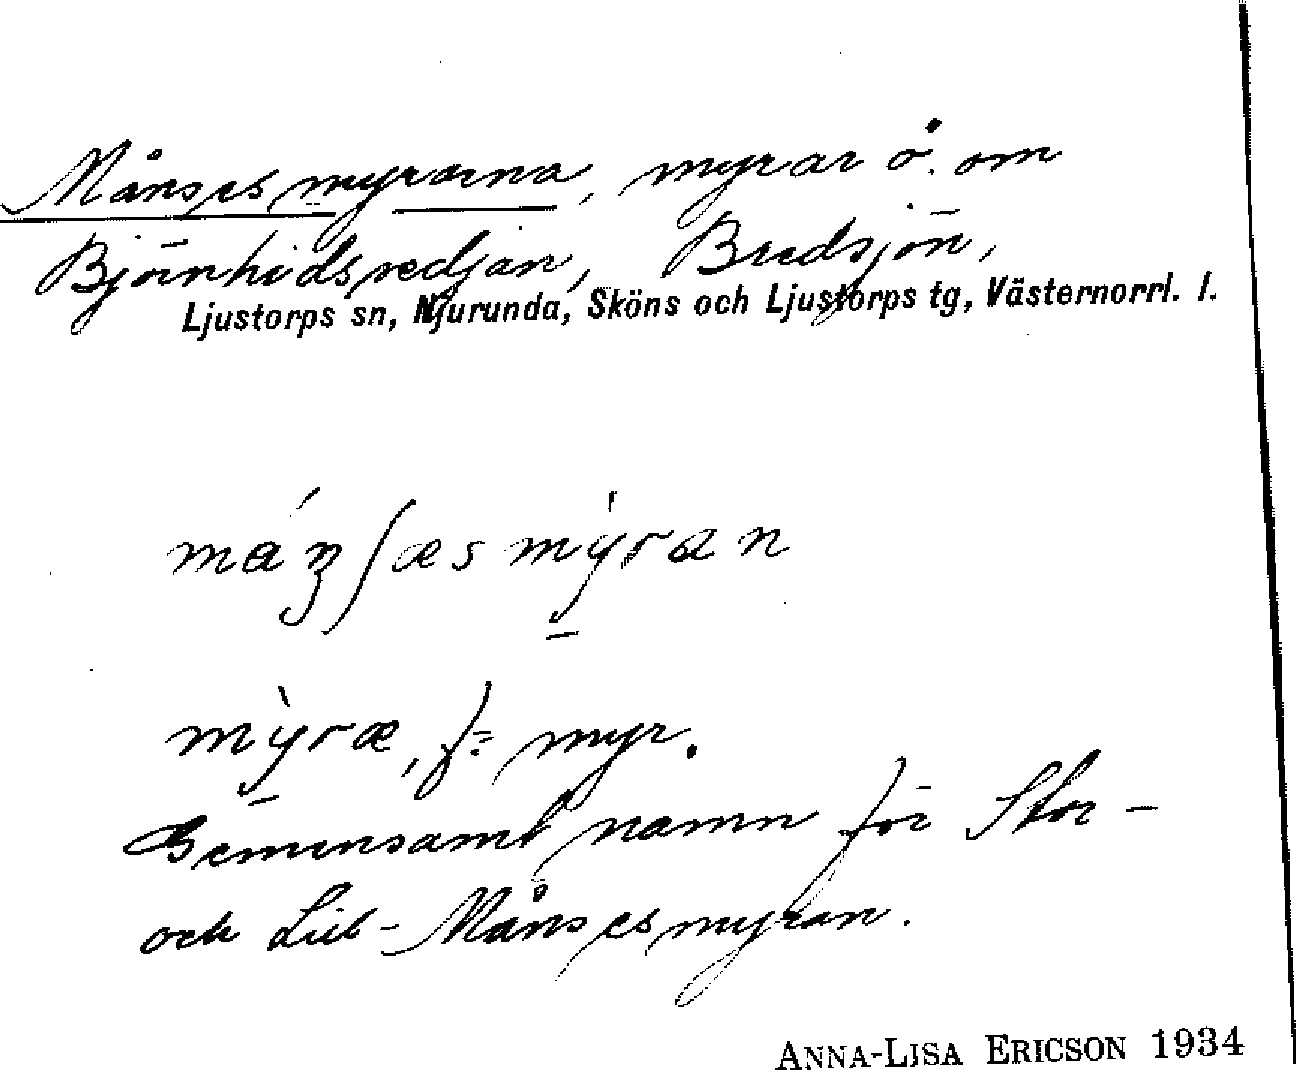 Månsesmyrarna, myrar ö. om
Björnhidsredjan, Bredsjön,
Ljustorps sn, Njurunda, Sköns och Ljustorps tg, Västernorrl. l.
mỳræ, f = myr.
Gemensamt namn för Stor-
och Lill-Månsesmyran.
ANNA-LISA ERICSON 1934